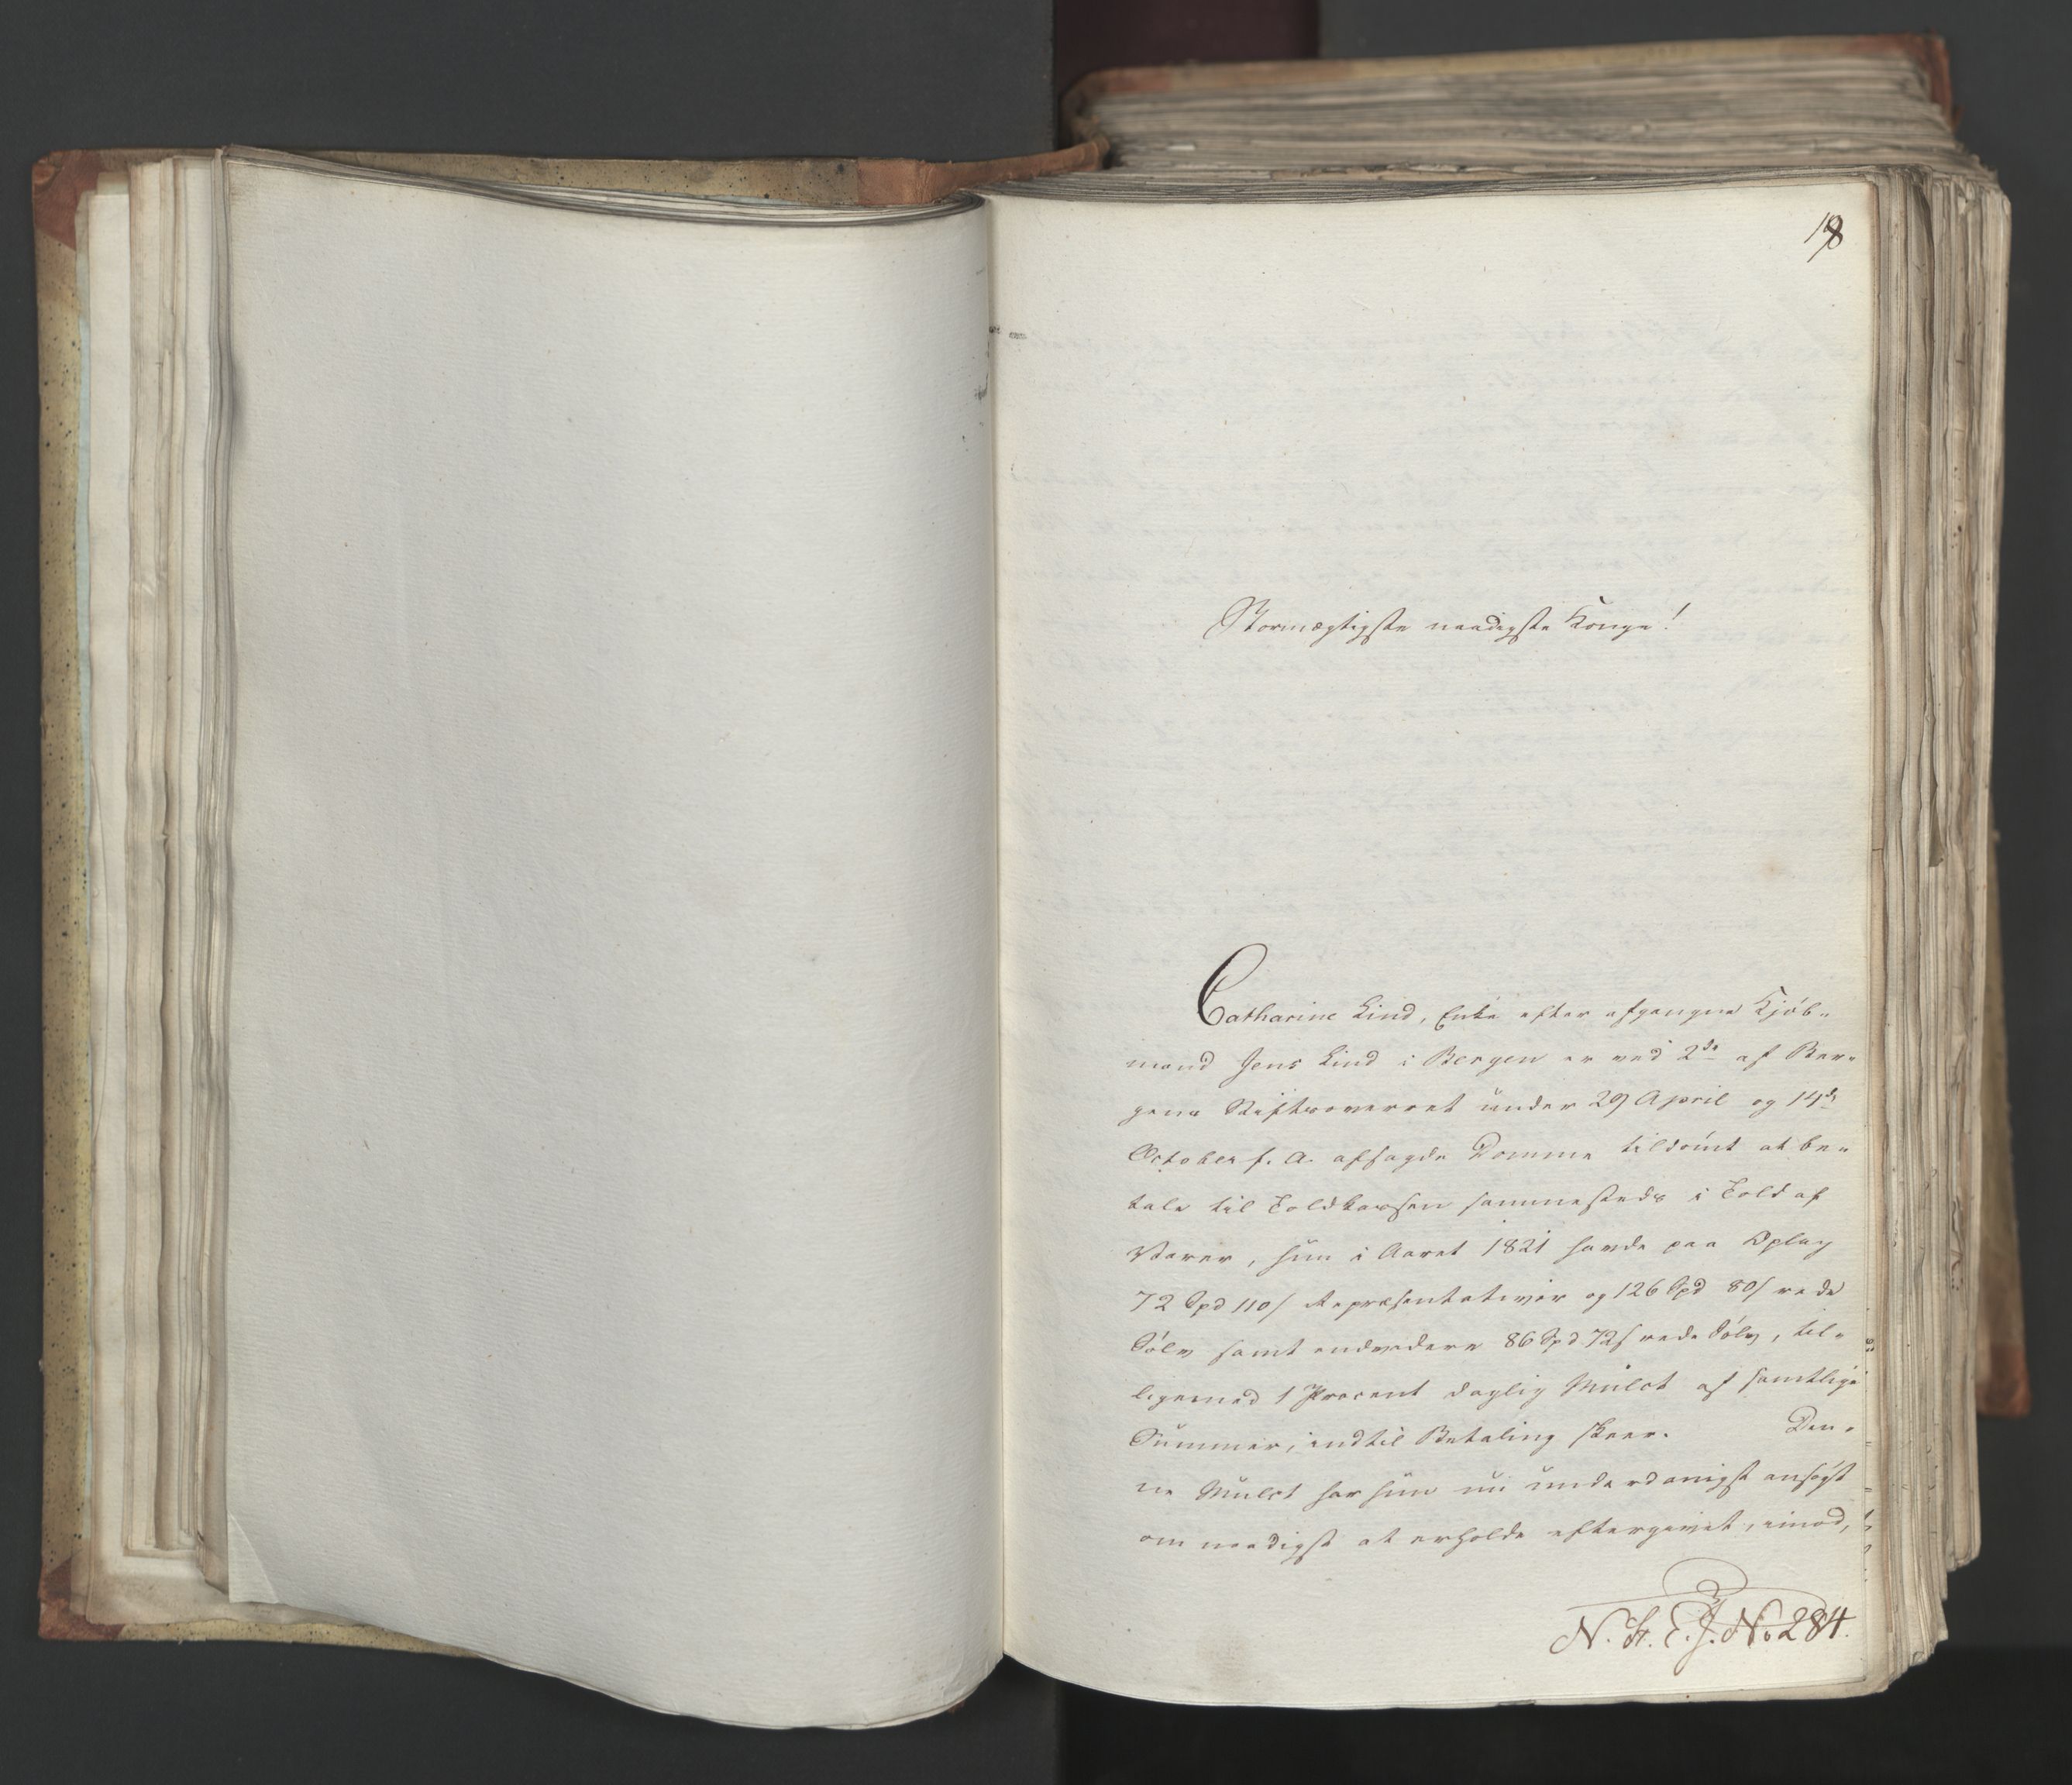 18
Stormægtigste naadigste Konge!
Catharine Lind, Enke efter afgangne Kjöb-
mand Jens Lind i Bergen er ved 2de af Ber-
gens Stiftsoverret under 29 April og 14de
October f. A. afsagde Domme tildömt at be-
tale til Toldkassen sammesteds i Told af
Varer, hun i Aaret 1821 havde paa Oplag
72 Spd 110 s Repræsentativer og 126 Spd 80 s rede
Sölv samt endvidere 86 Spd 72 s rede Sölv, til-
ligemed 1 Procent daglig Mulct af samtlige
Summer, indtil Betaling skeer. Den-
ne Mulct har hun nu underdanigst ansögt
om naadigst at erholde eftergivet, imod,
N. St. E. J. No 284.